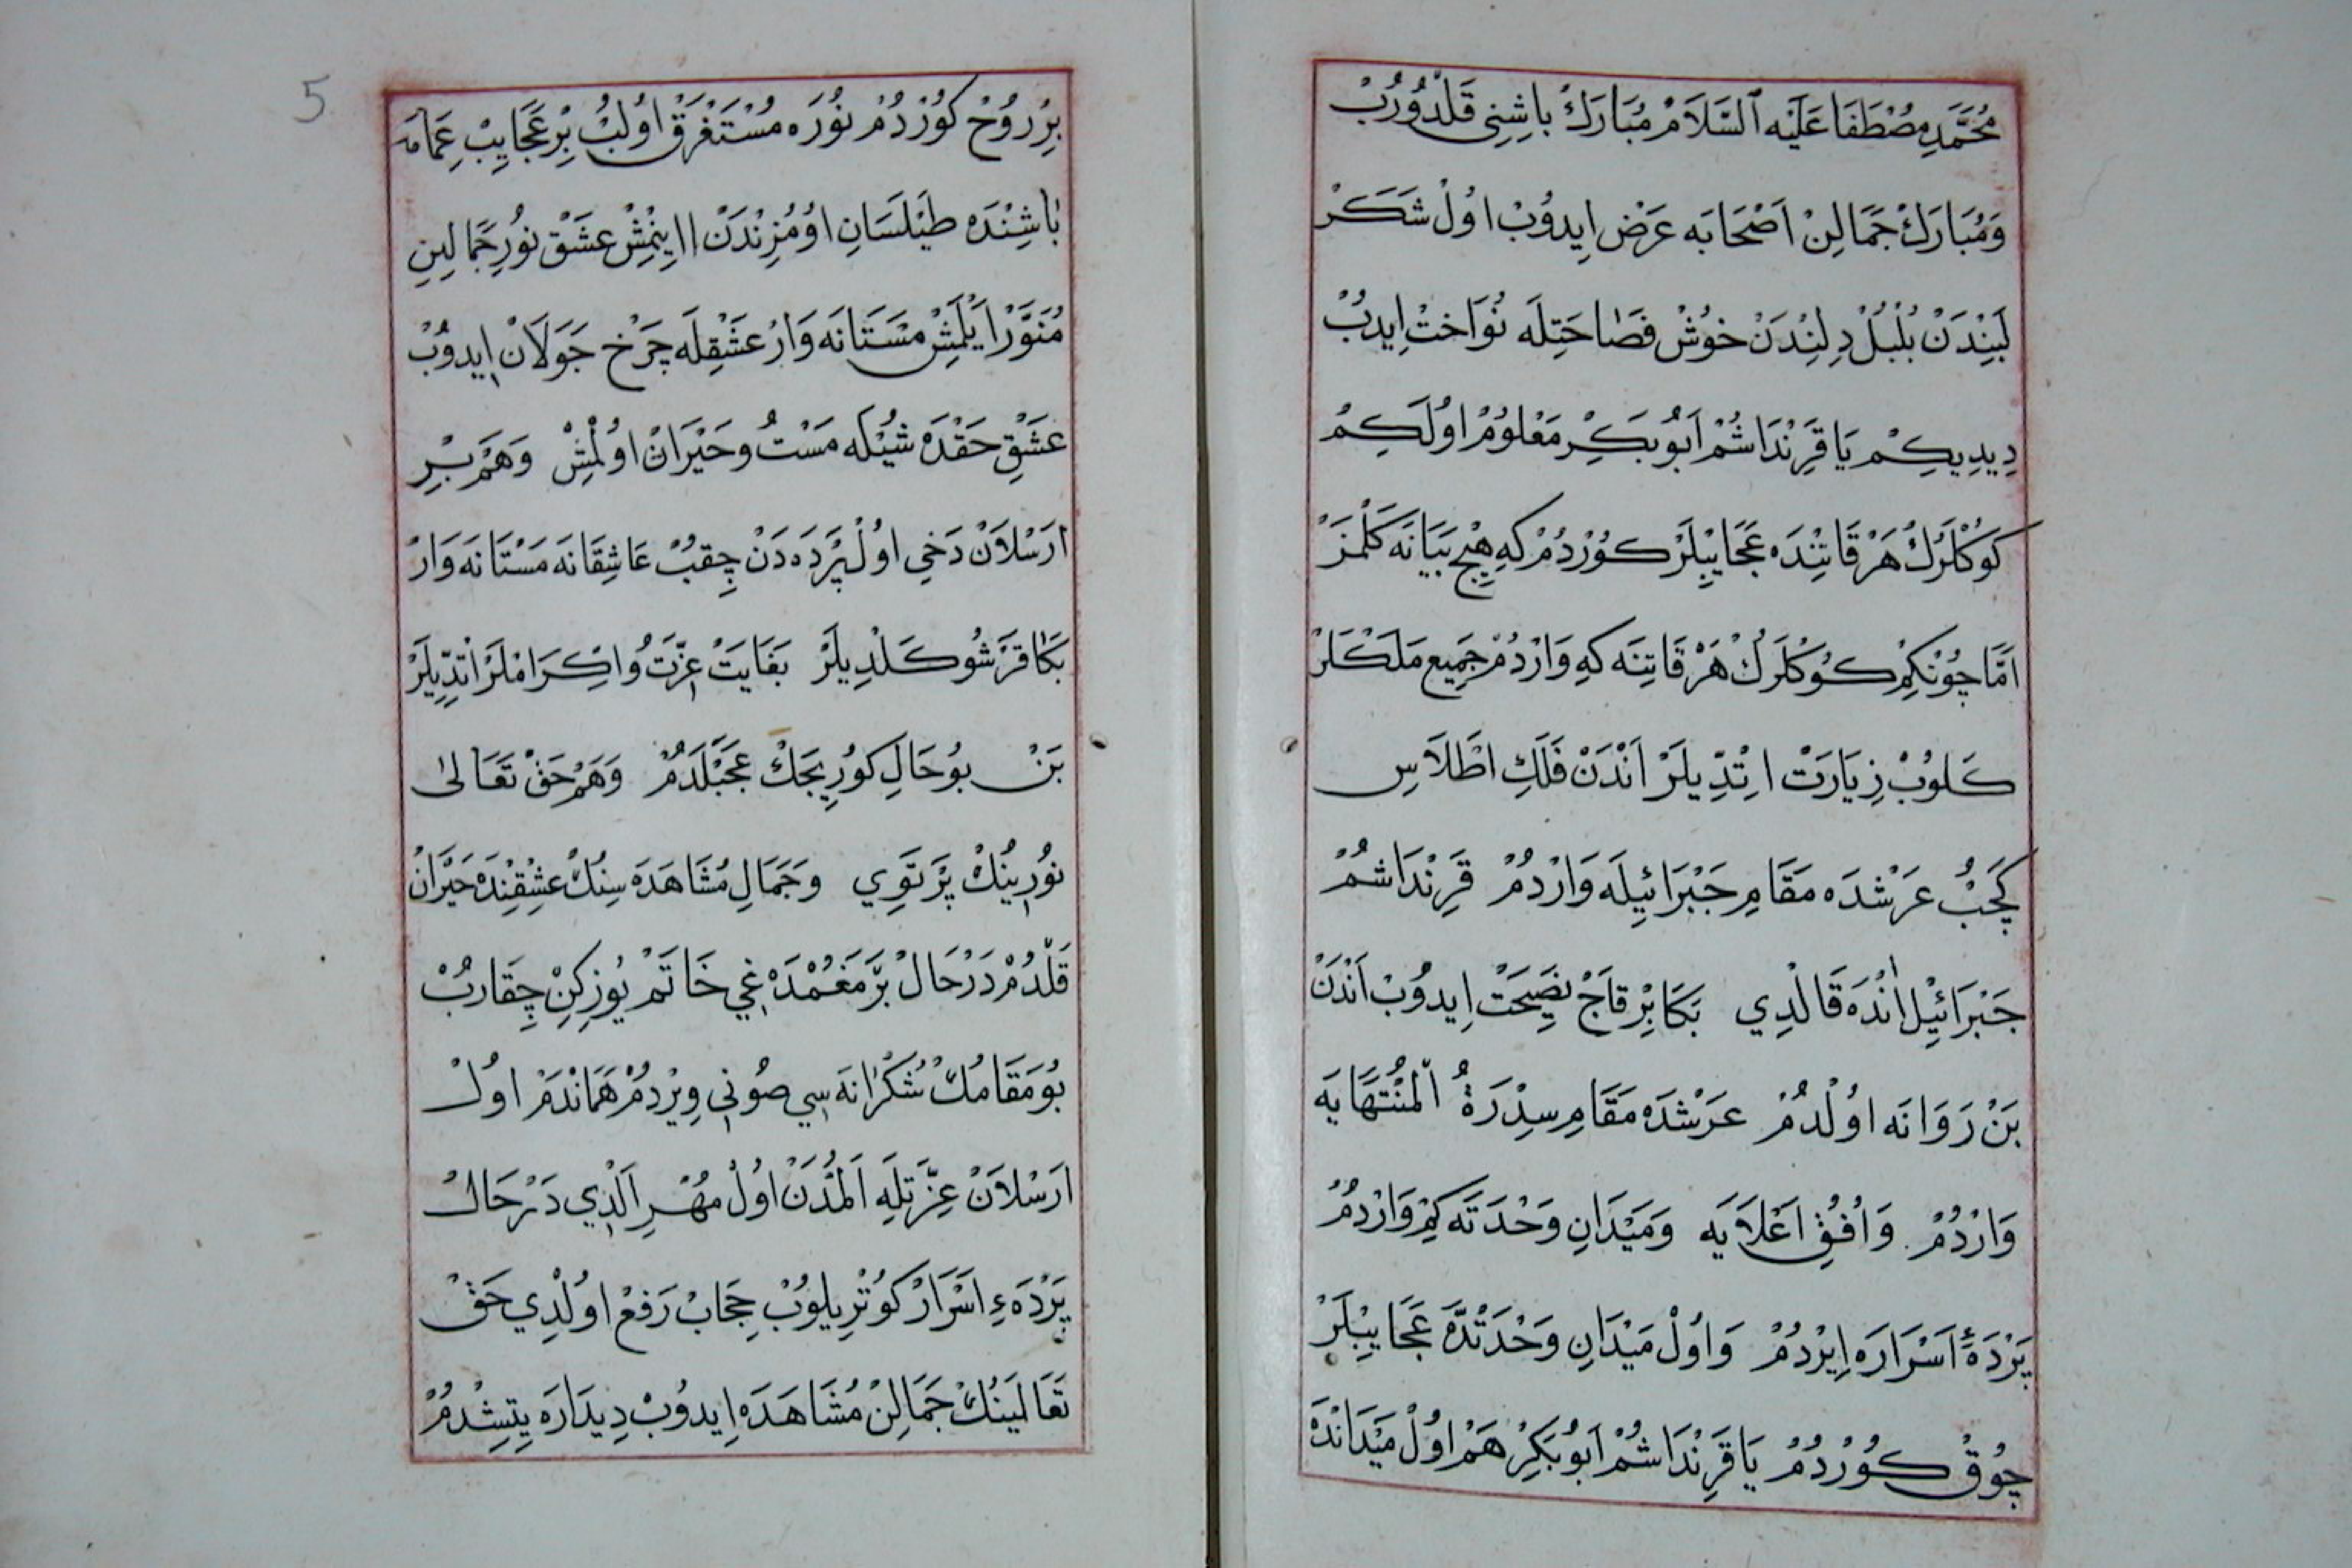 مُحَمَّدِ مُصْطَفَا عَلَيْه ٱلسَّلَامْ مُبَارَكْ بَاشِنِى قَلْدُورُبْ
وَمُبَارَكْ جَمَالِنْ اَصْحَابَه عَرْضْ اِيدُوبْ اوُلْ شَكَرْ
لَبِنْدَنْ بُلْبُلْ دِلِنْدَنْ خُوشْ فَصَاحَتِلَه نُوَاخْتْ اِيدُبْ
دِيدِيكِمْ يَا قَرِنْدَاشُمْ اَبُو بَكِرْ مَعْلُومْ اوُلَكِمْ
كَوُكْلَرُكْ هَرْ قَاتِنْدَه عَجَايِبِلَرْ كُورْدُمْ كِه هِيچْ بَيَانَه كَلْمَزْ
اَمَّا چُونْكِمْ كُوكْلَرُكْ هَرْ قَاتِنَه كِه وَارْدُمْ جَمِيعِ مَلَكْلَرْ
كَلُوبْ زِيَارَتْ اِتْدِّيلَرْ اَنْدَنْ فَلَكِ اَطْلَاسِ
كَچُبْ عَرْشْدَه مَقَامِ جَبْرَائِيلَه وَارْدُمْ قَرِنْدَاشُمْ
جَبْرَائِيلْ اَنْدَه قَالْدِي بَكَا بِرْ قَاچْ نَصِيحَتْ اِيدُوبْ اَنْدَنْ
بَنْ رَوَانَه اوُلْدُمْ عَرْشْدَه مَقَامِ سِدْرَةُ الْمُنْتَهَايَه
وَارْدُمْ وَاُفُقِ اَعْلَايَه وَمَيْدَانِ وَحْدَتَه كِمْ وَارْدُمْ
پَرْدَهٔ اَسْرَارَه اِيرْدُمْ وَاوُلْ مَيْدَانِ وَحْدَتْدَه عَجَايِبْلَرْ
چُوقْ كُورْدُمْ يَا قَرِنْدَاشُمْ اَبُو بَكِرْ هَمْ اوُلْ مَيْدَانْدَه
5
بِرْ رُوحْ كُورْدُمْ نُورَه مُسْتَغْرَقْ اوُلُبْ بِرْ عَجَايِبْ عِمَامَه
بَاشِنْدَه طَيْلَسَانِ اوُمُزِنْدَنْ اَاِينْمِشْ عَشْقْ نُورِ جَمَالِينِ
مُنَوَّرْ اَيْلَمِشْ مَسْتَانَه وَارْ عَشْقِلَه چَرْخْ جَوَلَانْ اِيدُوبْ
عَشْقِ حَقْدَه شُيْلَه مَسْتُ وحَيْرَانْ اوُلْمُشْ وَهَمْ بِرْ
اَرَسْلَانْ دَخِي اوُلْ پَرْدَه دَنْ چِقُبْ عَاشِقَانَه مَسْتَانَه وَارْ
بَكَا قَرْشُو كَلْدِيلَرْ بَغَايَتْ عِزَّتُ وَاِكْرَامْلَرْ اَتْدِّيلَرْ
بَنْ بُو حَالِ كُورِيجَكْ عَجَبْلَدُمْ وَهَمْ حَقْ تَعَالىٰ
نُورِينُكْ پَرْتَوِي وَجَمَالِ مُشَاهَدَه سِنُكْ عِشْقِنْدَه حَيْرَانْ
قَلْدُمْ دَرْحَالْ بَرْمَغُمْدَه غِي خَاتَمْ يُوزِكِنْ چِقَارُبْ
بُو مَقَامُكْ شُكْرَانَه سِي صُونِي وِيرْدُمْ هَمَانْدَمْ اوُلْ
اَرَسْلَانْ عِزَّتِلَه اَلُمْدَنْ اوُلْ مُهْرِ اَلْدِي دَرْحَالْ
پَرْدَهءِ اَسْرَارْ كُوتْرِيلُوبْ حِجَابْ رَفِعْ اوُلْدِي حَقْ
تَعَالَينُكْ جَمَالِنْ مُشَاهَدَه اِيدُوبْ دِيدَارَه يِتِشْدُمْ